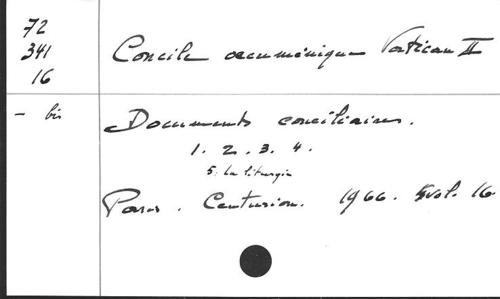 72
341
16
Concile œcuménique Vatican II
- bis
Documents conciliaires.
1. 2. 3. 4.
5. La liturgie
Paris. Centurion. 1966. 5 vol. 16